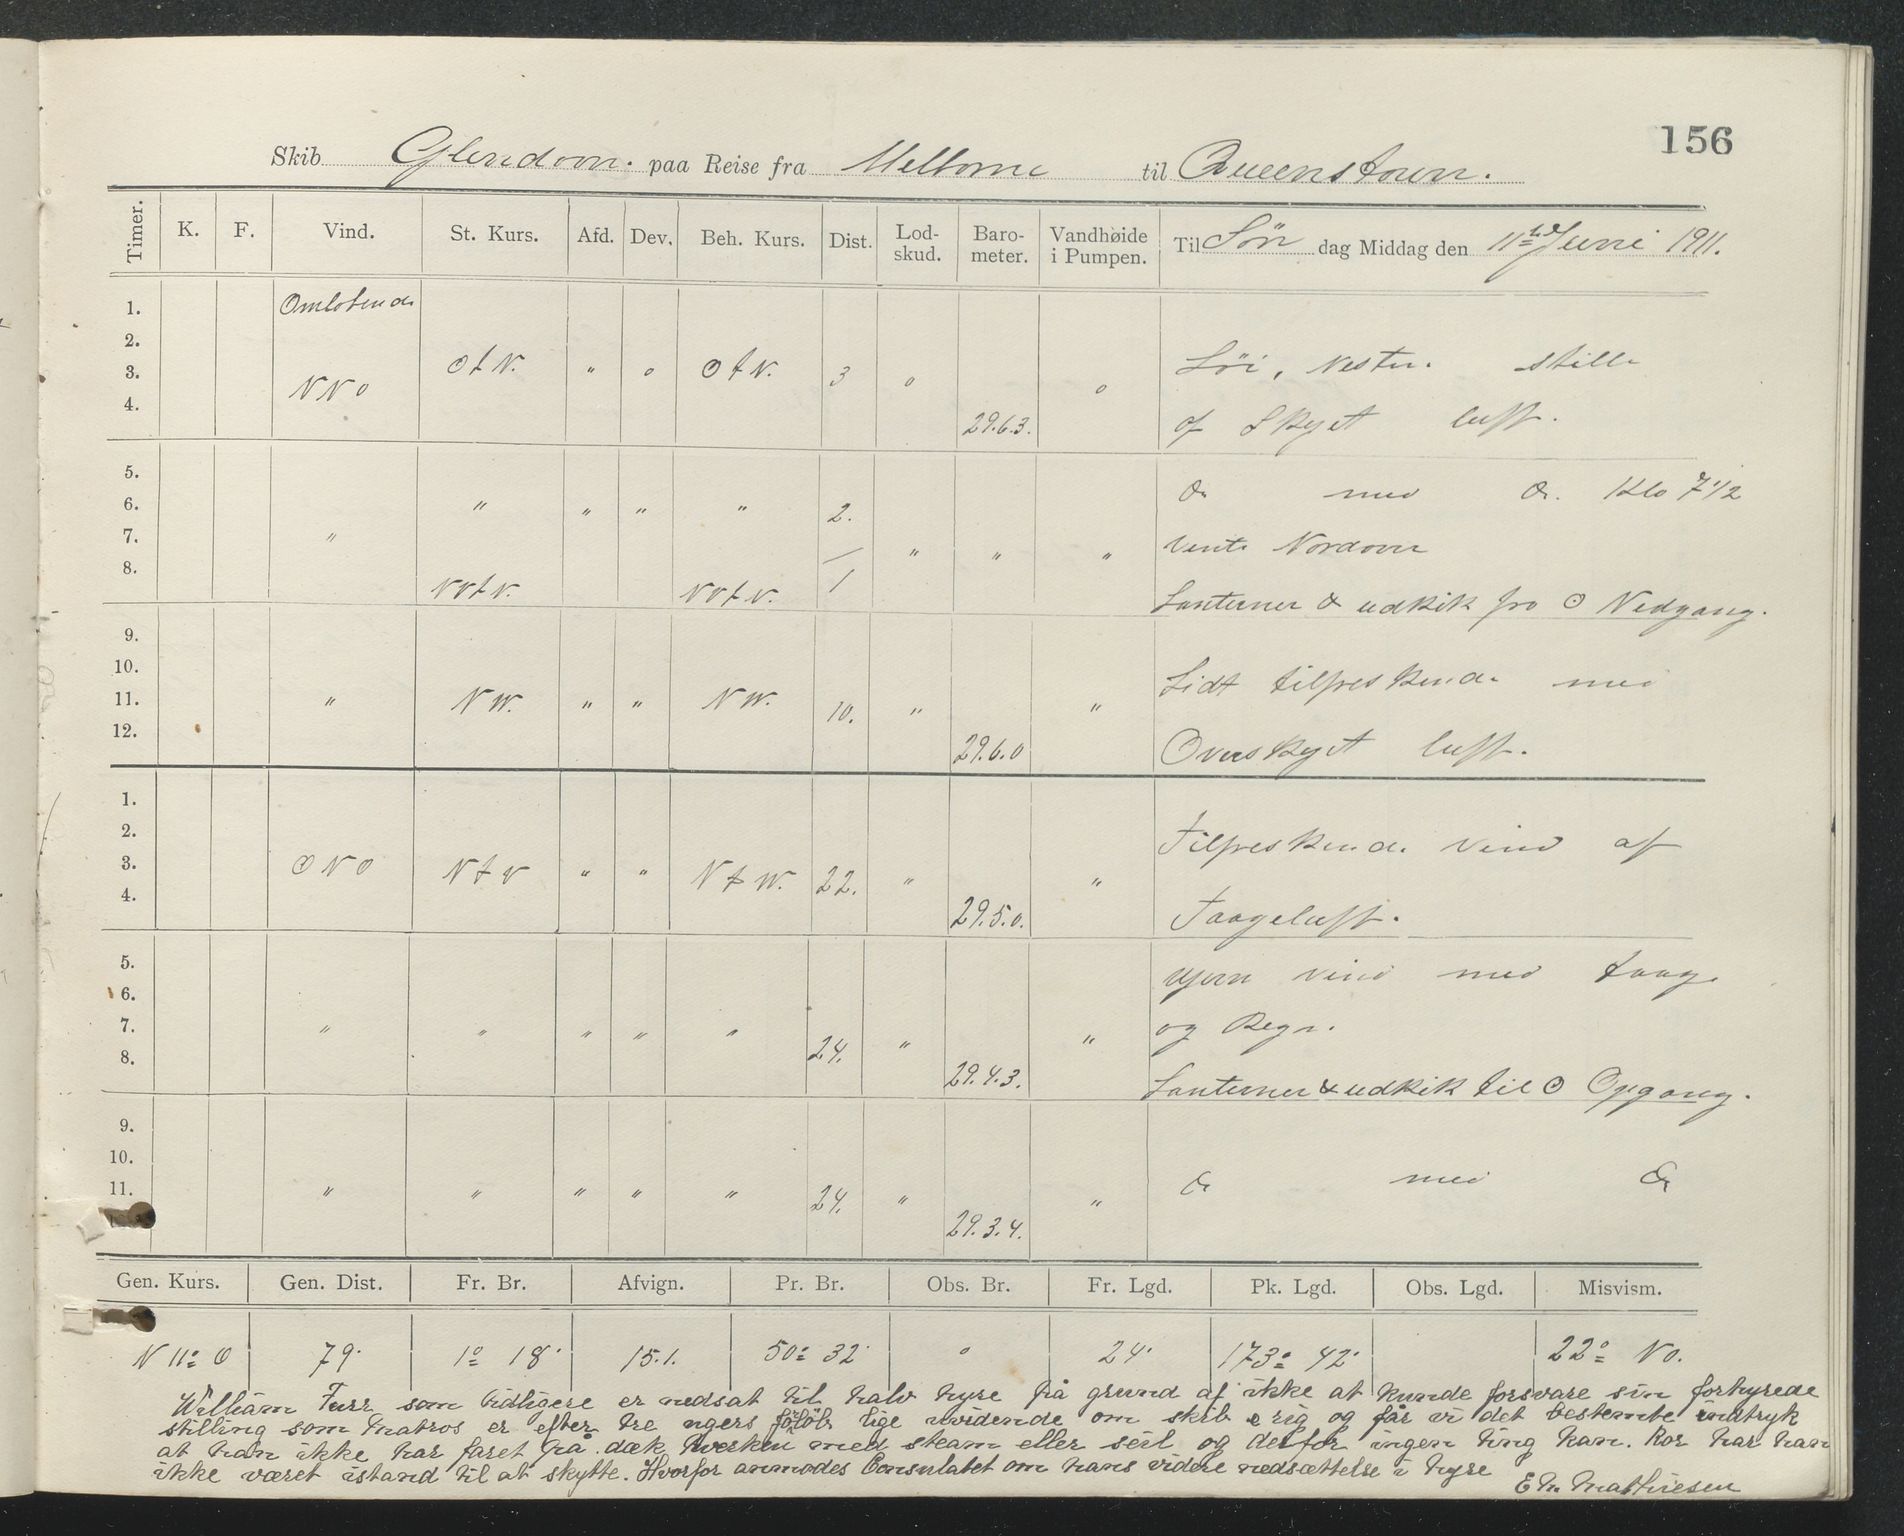 156
Skib Glendoon. paa Reise fra Melborne til Queenstown.
Timer. K. F. Vind. St. Kurs. Afd. Dev. Beh. Kurs. Dist. Lod-skud. Baro-meter. Vandhøide i Pumpen. Til Søn dag Middag den 11te Juni 1911.
1. Omløbende
2. O t N. " o O t N. 3 Löi, Vestn. stille
3. NNO o o
4. 29.6.3. af Skyet luft.
5. Do med Do. Klo 7 1/2
6. " " " " 2.
7. " / " " " vente Nordover
8. NVtV. NVtV. 1 Lanterner & udkik fra ☉ Nedgang.
9.
10. Lidt tilfreskende med
11. " NW. " " NW. 10. " "
12. 29.6.0 Overskyet luft.
1.
2. Tilfreskende vind af
3. ONO NtV " " NtW. 22. " "
4. 29.5.0. Taageluft.
5. Ujevn vind med taag.
6.
7. " " " " " 24. " " og Regn.
8. 29.4.3. Lanterner & udkik til ☉ Opgang.
9.
10. Do med Do
11. " " " " " 24. " "
29.3.4.
Gen. Kurs. Gen. Dist. Fr. Br. Afvign. Pr. Br. Obs. Br. Fr. Lgd. Pk. Lgd. Obs. Lgd. Misvism.
N 11° O 79' 1° 18' 15.1. 50° 32' o 24' 173° 42' 22° NO.
William Furr som tidligere er nedsat til halv hyre på grund af ikke at kunde forsvare sin forhyrede
stilling som matros er efter tre ugers forlöb lige uvidende om skib & rig og får vi det bestemte indtryk
at han ikke har faret på dæk hverken med steam eller seil og derfor ingen ting kan. Ror har han
ikke været istand til at skytte. Hvorfor anmodes Consulatet om hans videre nedsættelse i hyre
E M Mathiesen